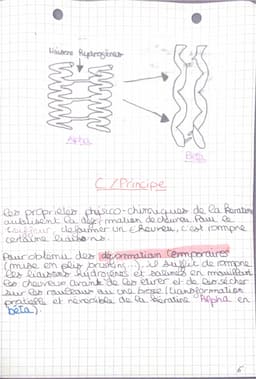 Liaisons Hydrogènes
Alpha
Beta
C/Principe
Les propriétés physico-chimiques de la Kératine
autorisent la déformation de cheveu. Pour le
coiffeur, déformer un cheveu, c'est rompre
certaine liaisons.
Pour obtenir des déformation temporaires
(mise en plis, brushing...), il suffit de rompre
les liaisons hydrogènes et salines en mouillant
les cheveux avant de les étirer et de les sécher
sur les rouleaux ou une brosse (transformation
partielle et réversible de la kératine Alpha en
bêta).
6